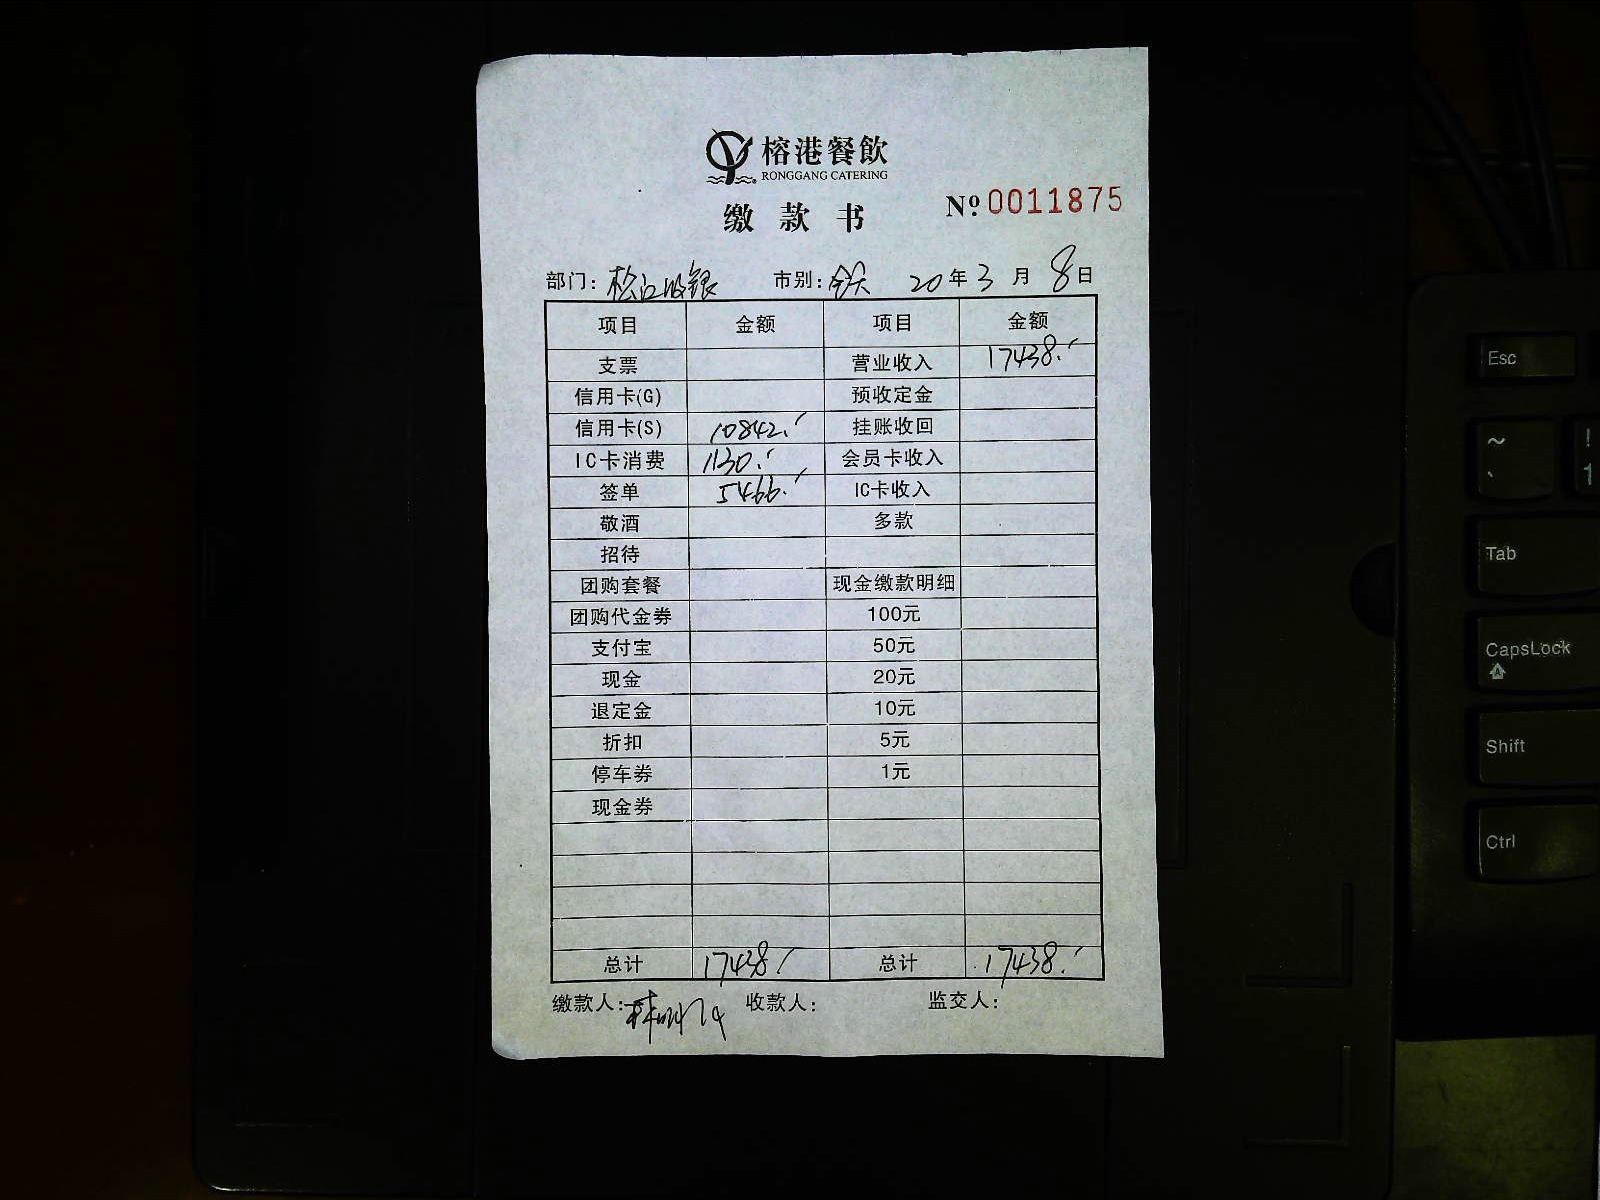 榕港餐飲
RONGGANG CATERING
缴款书 Nº 0011875
部门: 松江收银 市别: 全天 20年3月8日
项目 金额 项目 金额
支票 营业收入 17438.
信用卡(G) 预收定金
信用卡(S) 10842. 挂账收回
IC卡消费 1130. 会员卡收入
签单 5466. IC卡收入
敬酒 多款
招待
团购套餐 现金缴款明细
团购代金券 100元
支付宝 50元
现金 20元
退定金 10元
折扣 5元
停车券 1元
现金券
总计 17438. 总计 17438.
缴款人: 收款人: 监交人:
Esc
~
`
!
1
Tab
CapsLock
Shift
Ctrl